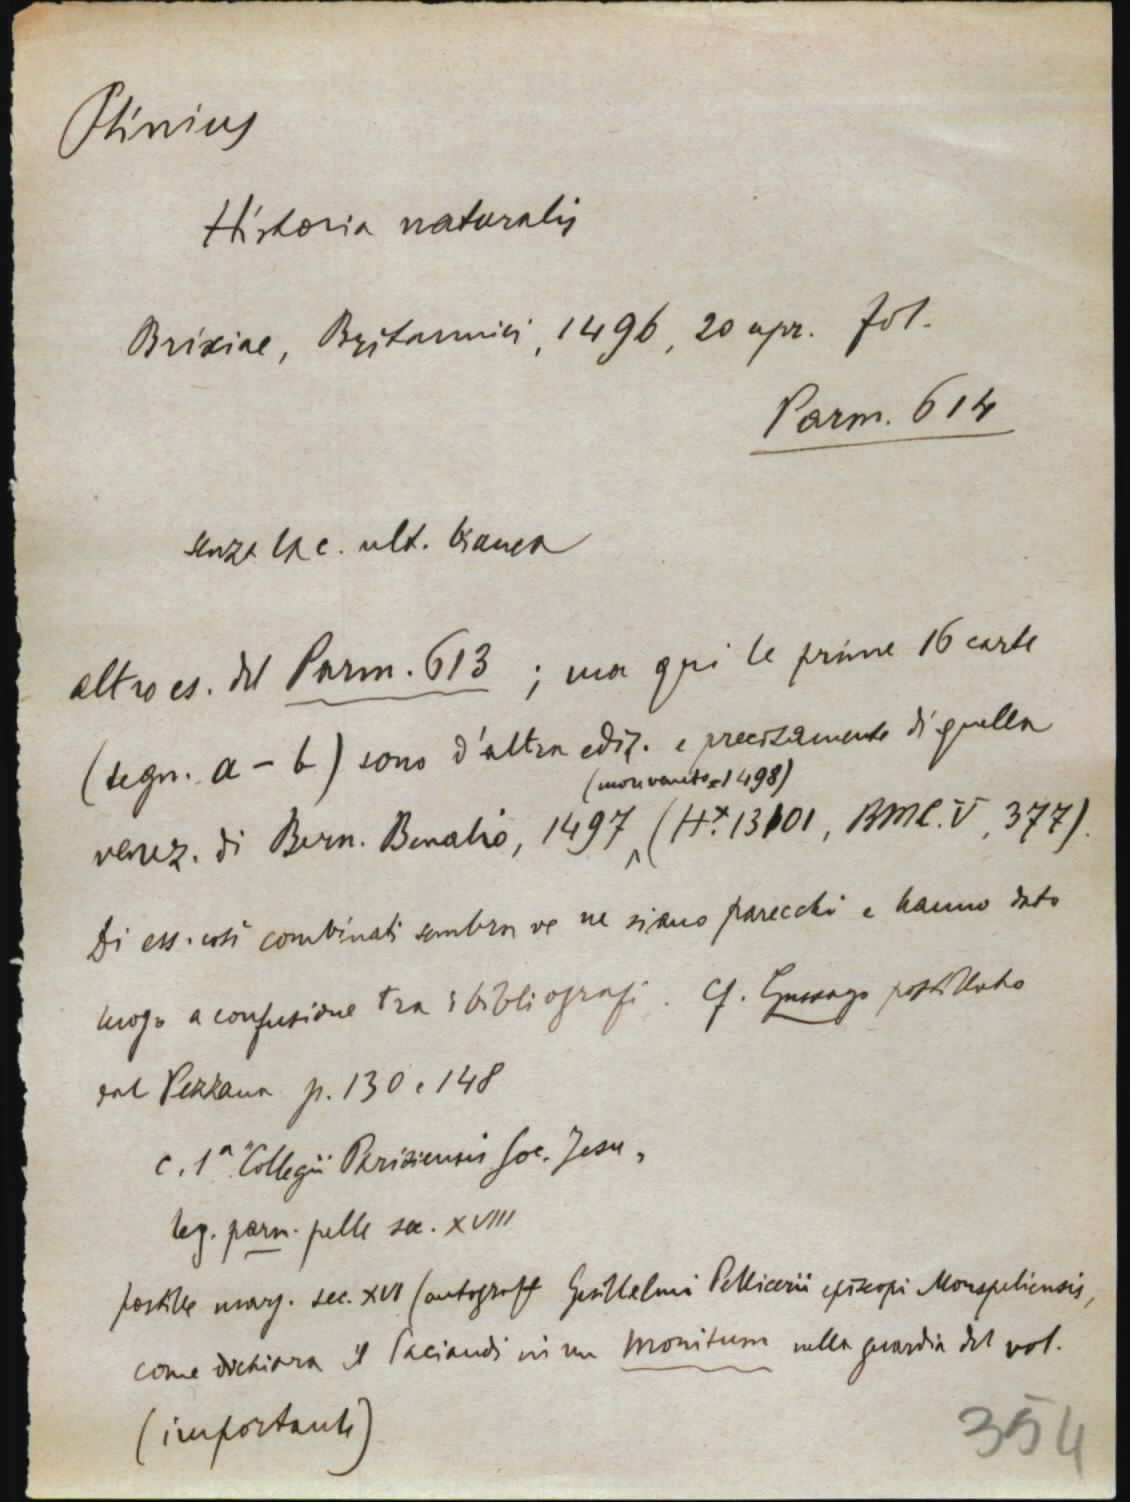 Plinius
Historia naturalis
Brixiae, Britannici, 1496, 20 apr. fol.
Parm. 614
senza la c. ult. bianca
altro es. del Parm. 613 ; ma qui le prime 16 carte
(segn. a - b) sono d'altra ediz. e precisamente di quella
(more veneto = 1498)
venez. di Bern. Benalio, 1497 (H*. 13101, BMC. V, 377).
Di es. così combinati sembra ve ne siano parecchi e hanno dato
luogo a confusione tra i bibliografi. Cf. Gussago postillato
dal Pezzana p. 130 e 148
c. 1a "Collegii Parisiensis Soc. Jesu,
leg. parm. pelle sec. XVIII
postille marg. sec. XVI (autografe Guillelmi Pellicerii episcopi Monspeliensis,
come dichiara il Paciaudi in un Monitum nella guardia del vol.
(importante)
354